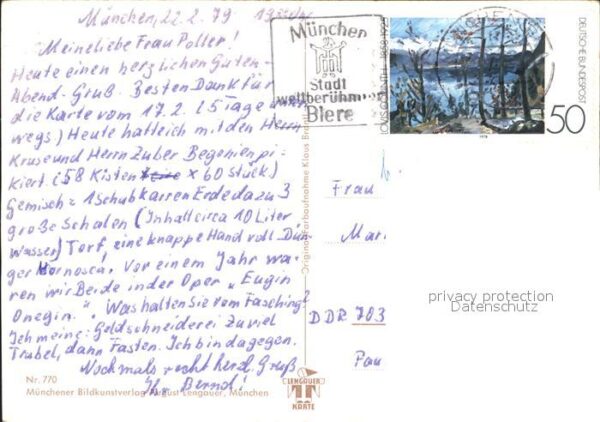 München, 22.2.79
Meine liebe Frau Poller!
Heute einen herzlichen Guten-
Abend-Gruß. Besten Dank für
die Karte vom 17.2. (5 Tage unter
wegs) Heute hatte ich mit den Herrn
Kruse und Herrn Zuber Begonien pi-
kiert (58 Kisten x 60 Stück)
Gemisch = 1 Schubkarren Erde dazu 3
große Schalen (Inhalt circa 10 Liter
Wasser) Torf, eine knappe Hand voll Dün-
ger "Hornosca". Vor einem Jahr wa-
ren wir Beide in der Oper "Eugin
Onegin." Was halten Sie vom Fasching?
Ich meine: Geldschneiderei zuviel
Trubel, dann Fasten. Ich bin dagegen.
Nochmals recht herzl. Gruß
Ihr Bernd!
Nr. 770
Münchener Bildkunstverlag August Lengauer, München
LENGAUER
KARTE
Original-Farbaufnahme Klaus
München
Stadt
weltberühmter
Biere
DEUTSCHE BUNDESPOST
50
1978
Frau
Mar
DDR 703
Pau
privacy protection
Datenschutz